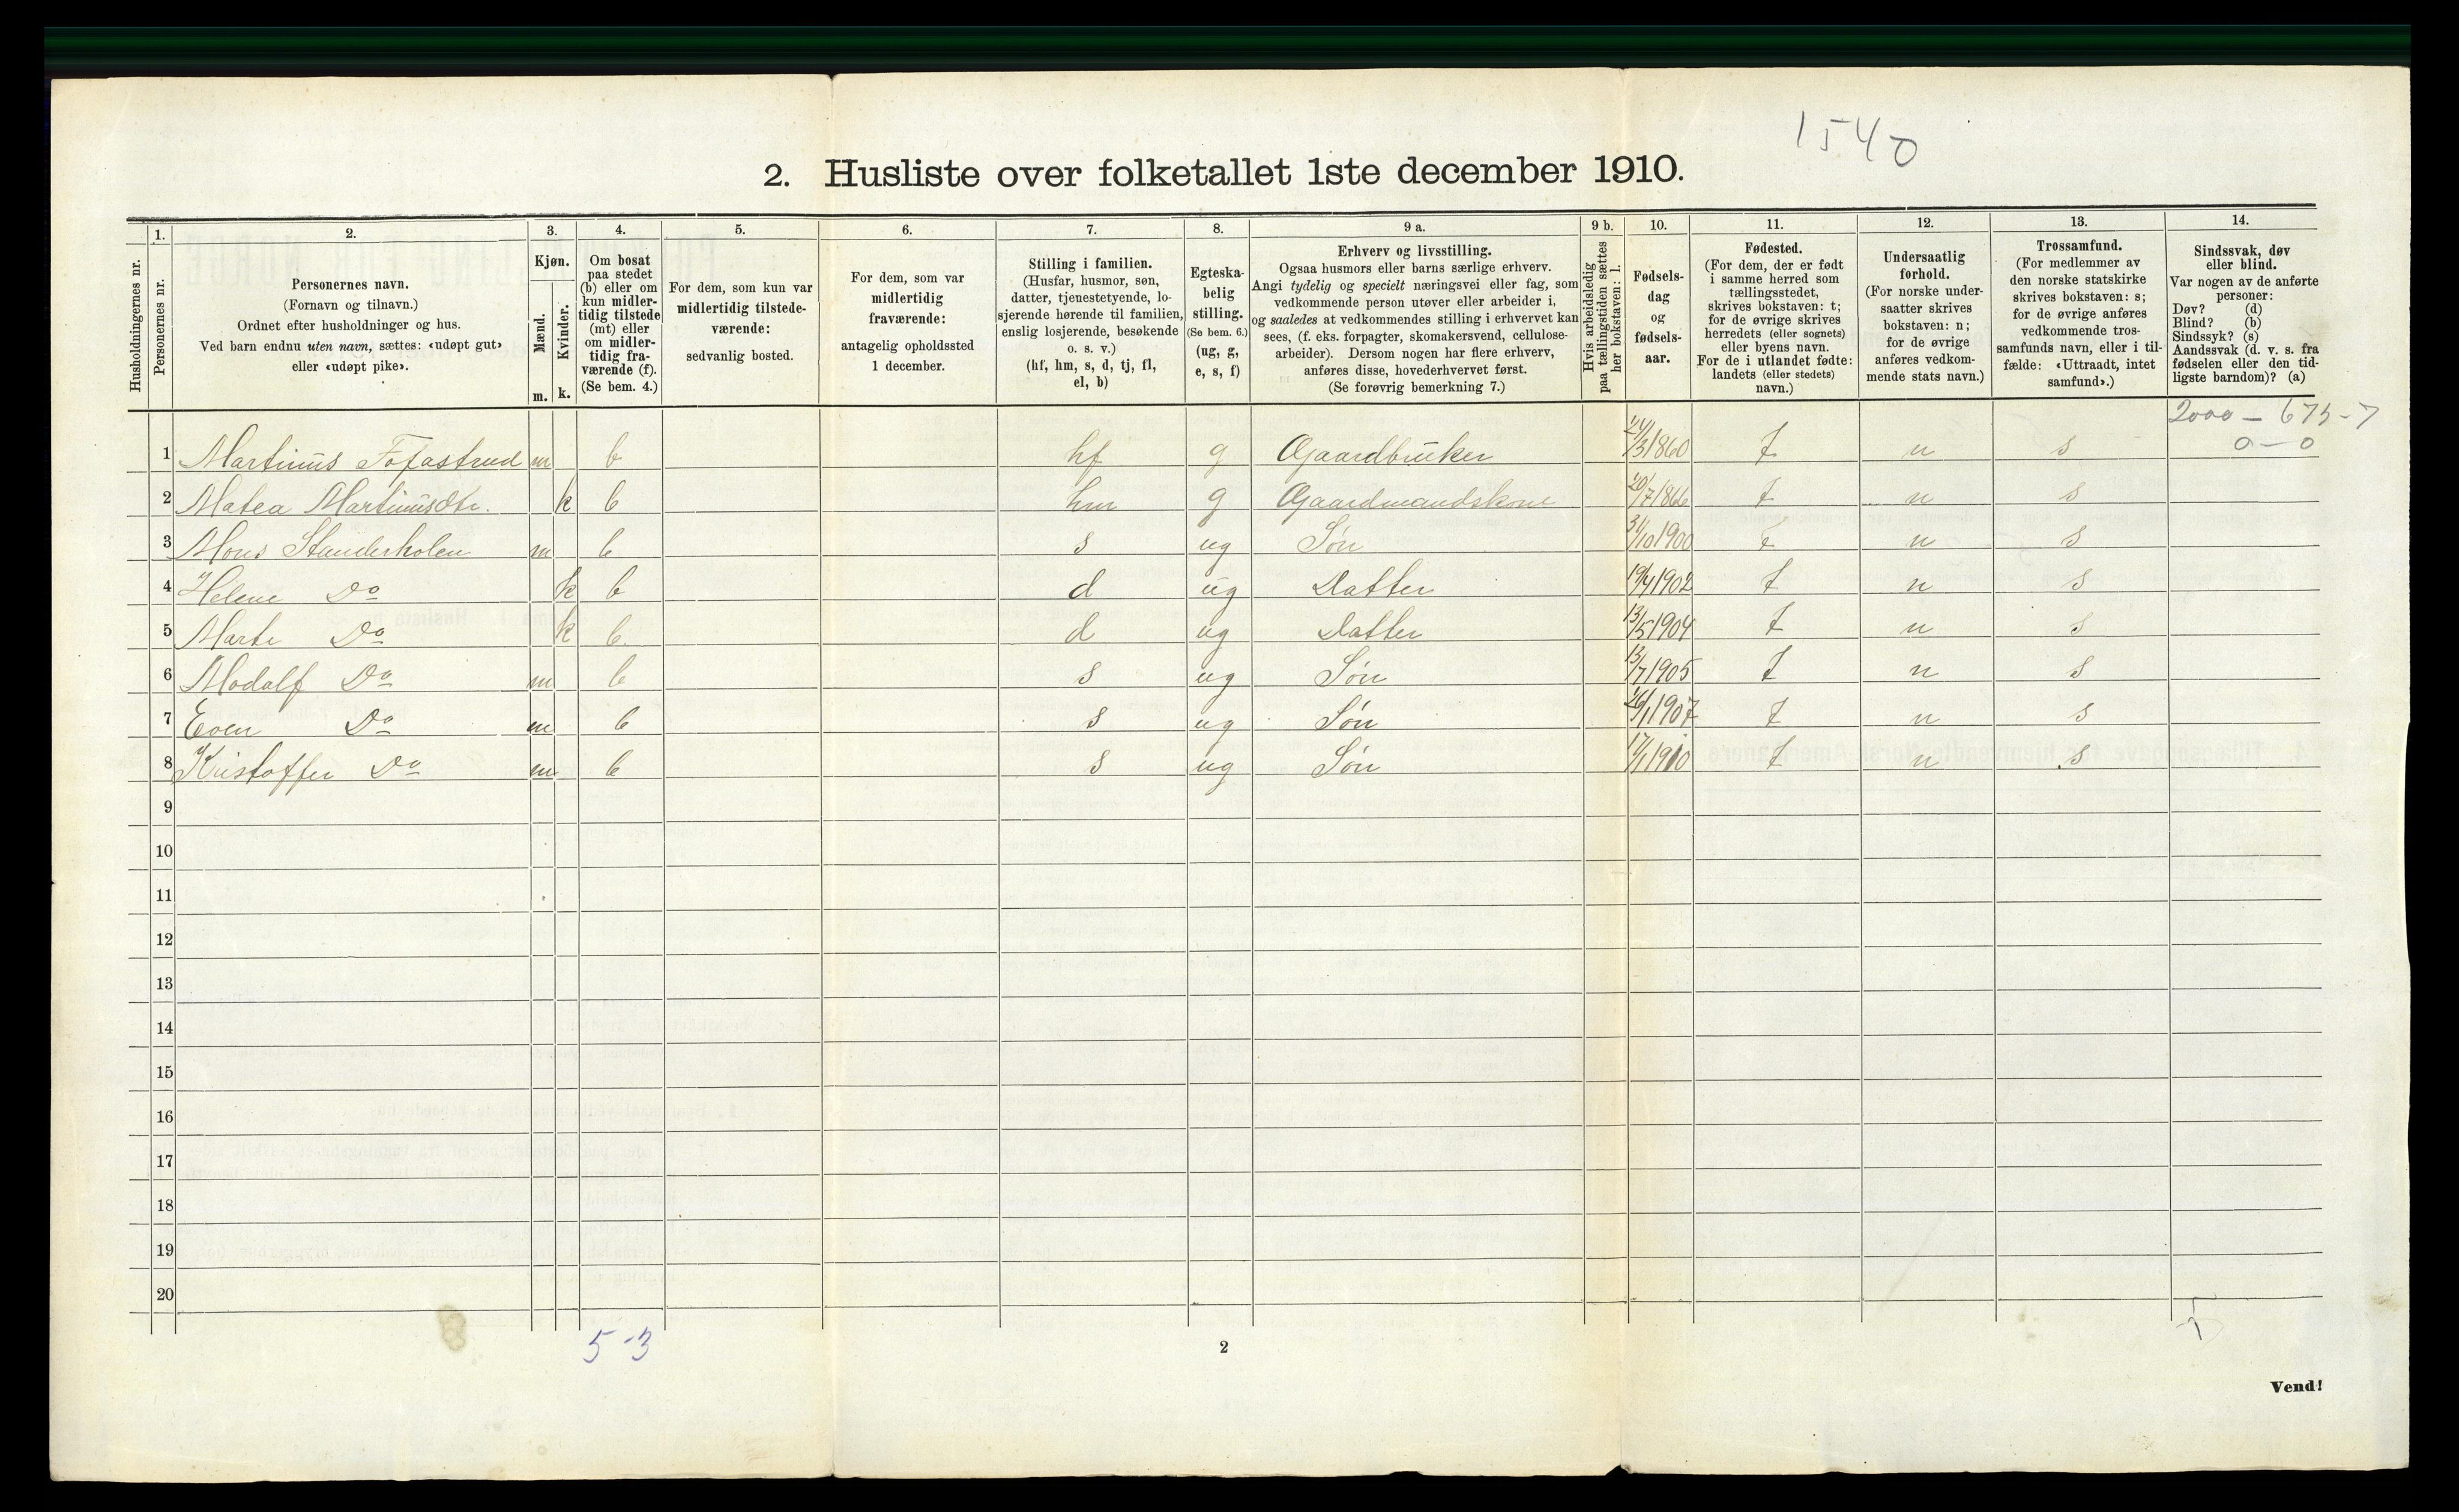 1540
2. Husliste over folketallet 1ste december 1910.
1. 2. 3. 4. 5. 6. 7. 8. 9 a. 9 b. 10. 11. 12. 13. 14.
Husholdningernes nr.
Personernes nr.
Personernes navn.
(Fornavn og tilnavn.)
Ordnet efter husholdninger og hus.
Ved barn endnu uten navn, sættes: «udøpt gut»
eller «udøpt pike».
Kjøn.
Mænd.
Kvinder.
m. k.
Om bosat
paa stedet
(b) eller om
kun midler-
tidig tilstede
(mt) eller
om midler-
tidig fra-
værende (f).
(Se bem. 4.)
For dem, som kun var
midlertidig tilstede-
værende:
sedvanlig bosted.
For dem, som var
midlertidig
fraværende:
antagelig opholdssted
1 december.
Stilling i familien.
(Husfar, husmor, søn,
datter, tjenestetyende, lo-
sjerende hørende til familien,
enslig losjerende, besøkende
o. s. v.)
(hf, hm, s, d, tj, fl,
el, b)
Egteska-
belig
stilling.
(Se bem. 6.)
(ug, g,
e, s, f)
Erhverv og livsstilling.
Ogsaa husmors eller barns særlige erhverv.
Angi tydelig og specielt næringsvei eller fag, som
vedkommende person utøver eller arbeider i,
og saaledes at vedkommendes stilling i erhvervet kan
sees, (f. eks. forpagter, skomakersvend, cellulose-
arbeider). Dersom nogen har flere erhverv,
anføres disse, hovederhvervet først.
(Se forøvrig bemerkning 7.)
Hvis arbeidsledig
paa tællingstiden sættes
her bokstaven: l.
Fødsels-
dag
og
fødsels-
aar.
Fødested.
(For dem, der er født
i samme herred som
tællingsstedet,
skrives bokstaven: t;
for de øvrige skrives
herredets (eller sognets)
eller byens navn.
For de i utlandet fødte:
landets (eller stedets)
navn.)
Undersaatlig
forhold.
(For norske under-
saatter skrives
bokstaven: n;
for de øvrige
anføres vedkom-
mende stats navn.)
Trossamfund.
(For medlemmer av
den norske statskirke
skrives bokstaven: s;
for de øvrige anføres
vedkommende tros-
samfunds navn, eller i til-
fælde: «Uttraadt, intet
samfund».)
Sindssvak, døv
eller blind.
Var nogen av de anførte
personer:
Døv? (d)
Blind? (b)
Sindssyk? (s)
Aandssvak (d. v. s. fra
fødselen eller den tid-
ligste barndom)? (a)
2000 – 675 – 7
0 – 0
1 Martinus Tofastrud m b hf g Gaardbruker 24/3 1860 t n s
2 Matea Martinusdtr. k b hm g Gaardmandskone 20/7 1866 t n s
3 Mons Standerholen m b s ug Søn 31/10 1900 t n s
4 Helene Do k b d ug Datter 19/4 1902 t n s
5 Marte Do k b d ug Datter 13/5 1904 t n s
6 Modolf Do m b s ug Søn 13/7 1905 t n s
7 Even Do m b s ug Søn 26/1 1907 t n s
8 Kristoffer Do m b s ug Søn 17/1 1910 t n s
9
10
11
12
13
14
15
16
17
18
19
20
5-3
2
Vend!